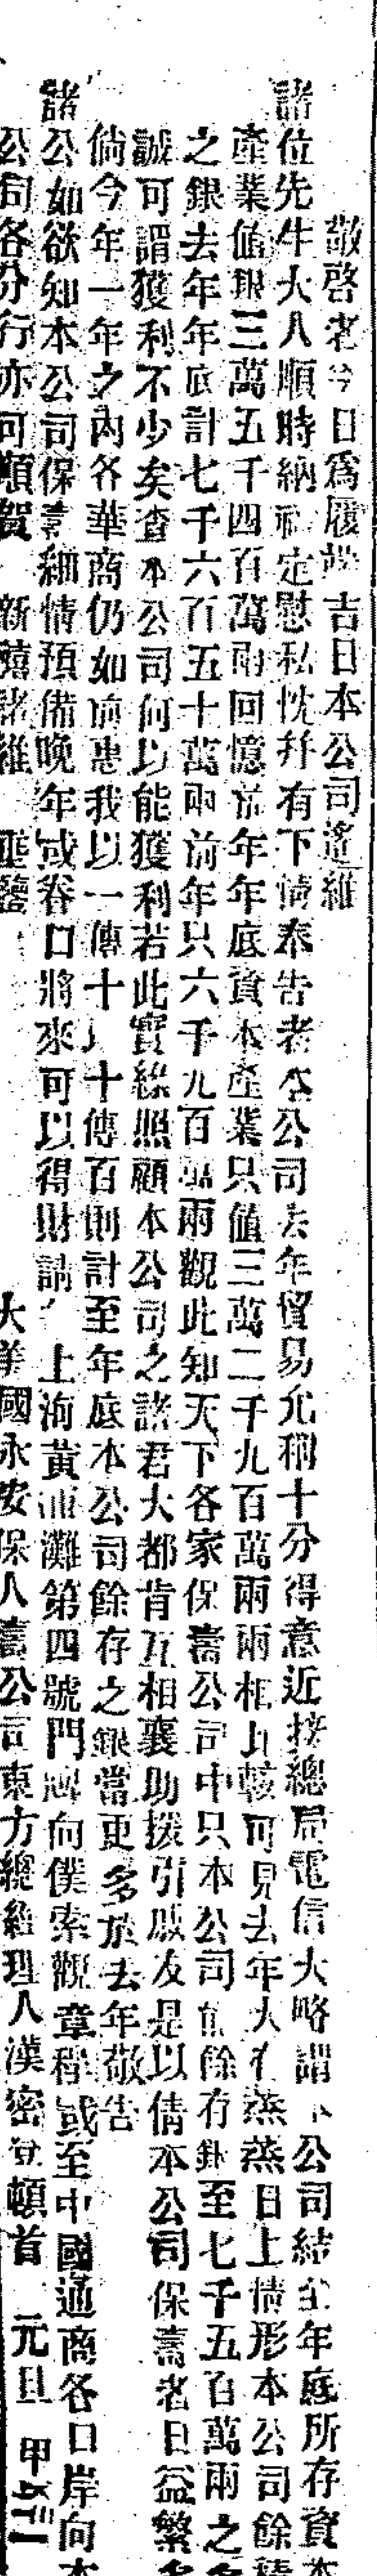 敬啓者今日爲履端吉日本公司遙維
諸位先生大人順時納福定慰私忱幷有下情奉告者本公司去年貿易尤稱十分得意近接總局電信大略謂本公司結至年底所存資本
產業値銀三萬五千四百萬兩回憶前年年底資本產業只値三萬二千九百萬兩兩相比較可見去年大有蒸蒸日上情形本公司餘積
之銀去年年底計七千六百五十萬兩前年只六千九百萬兩觀此知天下各家保壽公司中只本公司有餘存銀至七千五百萬兩之多
誠可謂獲利不少矣查本公司何以能獲利若此實緣照顧本公司之諸君大都肯互相襄助援引戚友是以倩本公司保壽者日益繁多
倘今年一年之內各華商仍如前惠我以一傳十以十傳百則計至年底本公司餘存之銀當更多於去年敬告
諸公如欲知本公司保壽細情預備晚年或眷口將來可以得財請 上海黃浦灘第四號門牌向僕索觀章程或至中國通商各口岸向本
公司各分行亦可順賀 新禧諸維 垂鑒
大美國永安保人壽公司東方總經理人漢密登頓首 元旦 甲